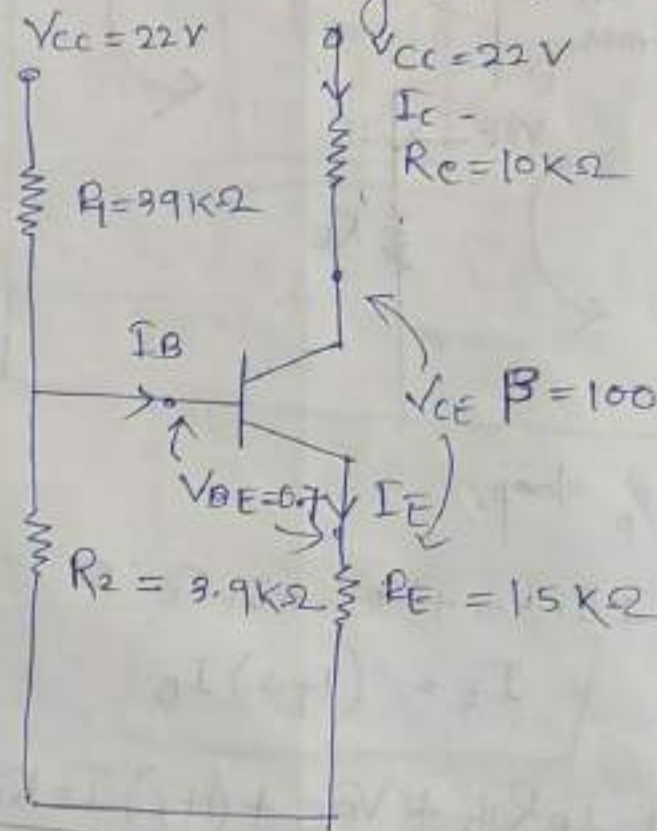 VCC = 22V
VCC = 22V
IC -
RC = 10KΩ
R1 = 39KΩ
IB
VCE β = 100
VBE = 0.7
IE
R2 = 3.9KΩ
RE = 1.5KΩ